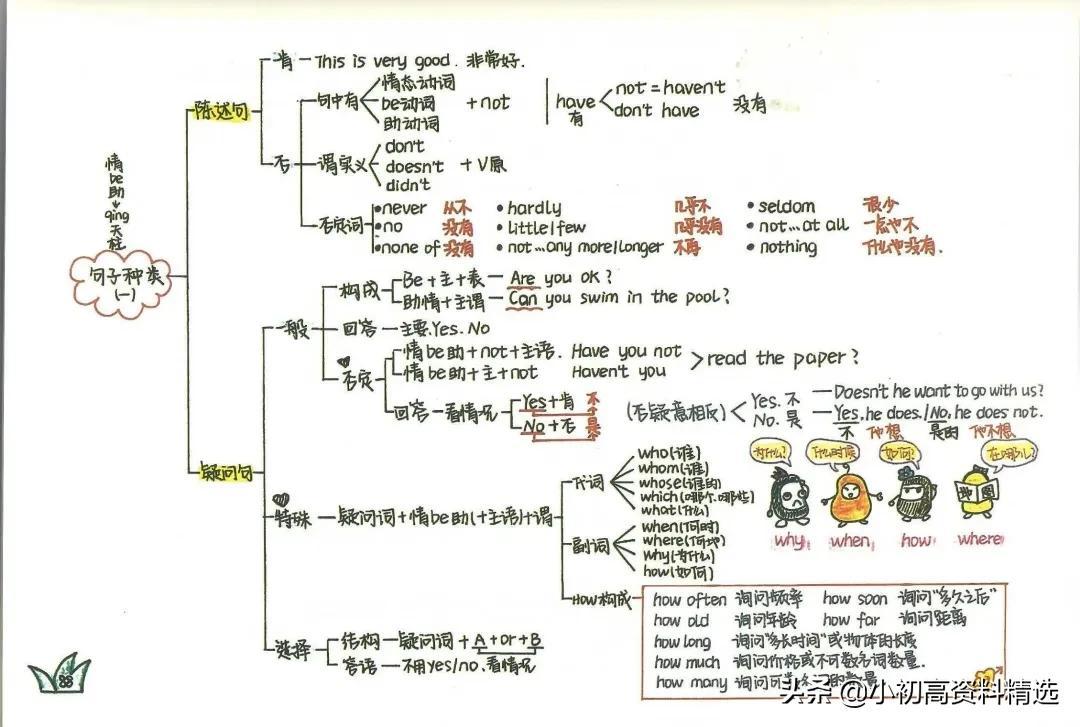 情be助→qing天柱
句子种类
(一)
陈述句
肯 — This is very good. 非常好.
否
句中有
情态动词
be动词
助动词
+ not
have
有
not = haven't
don't have
没有
谓实义
don't
doesn't
didn't
+ V原
否定词
•never 从不
•no 没有
•none of 没有
•hardly 几乎不
•little/few 几乎没有
•not...any more/longer 不再
•seldom 很少
•not...at all 一点也不
•nothing 什么也没有.
疑问句
一般
构成
Be+主+表 — Are you ok?
助情+主谓 — Can you swim in the pool?
回答 — 主要.Yes. No
否定
情be助+not+主语. Have you not
情be助+主+not Haven't you
read the paper?
回答 — 看情况
Yes+肯 不
No+否 是
(否疑意相反)
Yes. 不
No. 是
— Doesn't he want to go with us?
— Yes, he does. / No, he does not.
不 他想 是的 他不想
特殊 — 疑问词+情be助(+主语)+谓
代词
who(谁)
whom(谁)
whose(谁的)
which(哪个.哪些)
what(什么)
副词
when(何时)
where(何地)
why(为什么)
how(如何)
为什么?
什么时候
如何?
在哪儿?
地图
why when how where
How构成
how often 询问频率 how soon 询问"多久之后"
how old 询问年龄 how far 询问距离
how long 询问"多长时间"或物体的长度
how much 询问价格或不可数名词数量.
how many 询问可数名词的数量
选择
结构 — 疑问词 + A+or+B
答语 — 不用yes/no.看情况
88
头条 @小初高资料精选